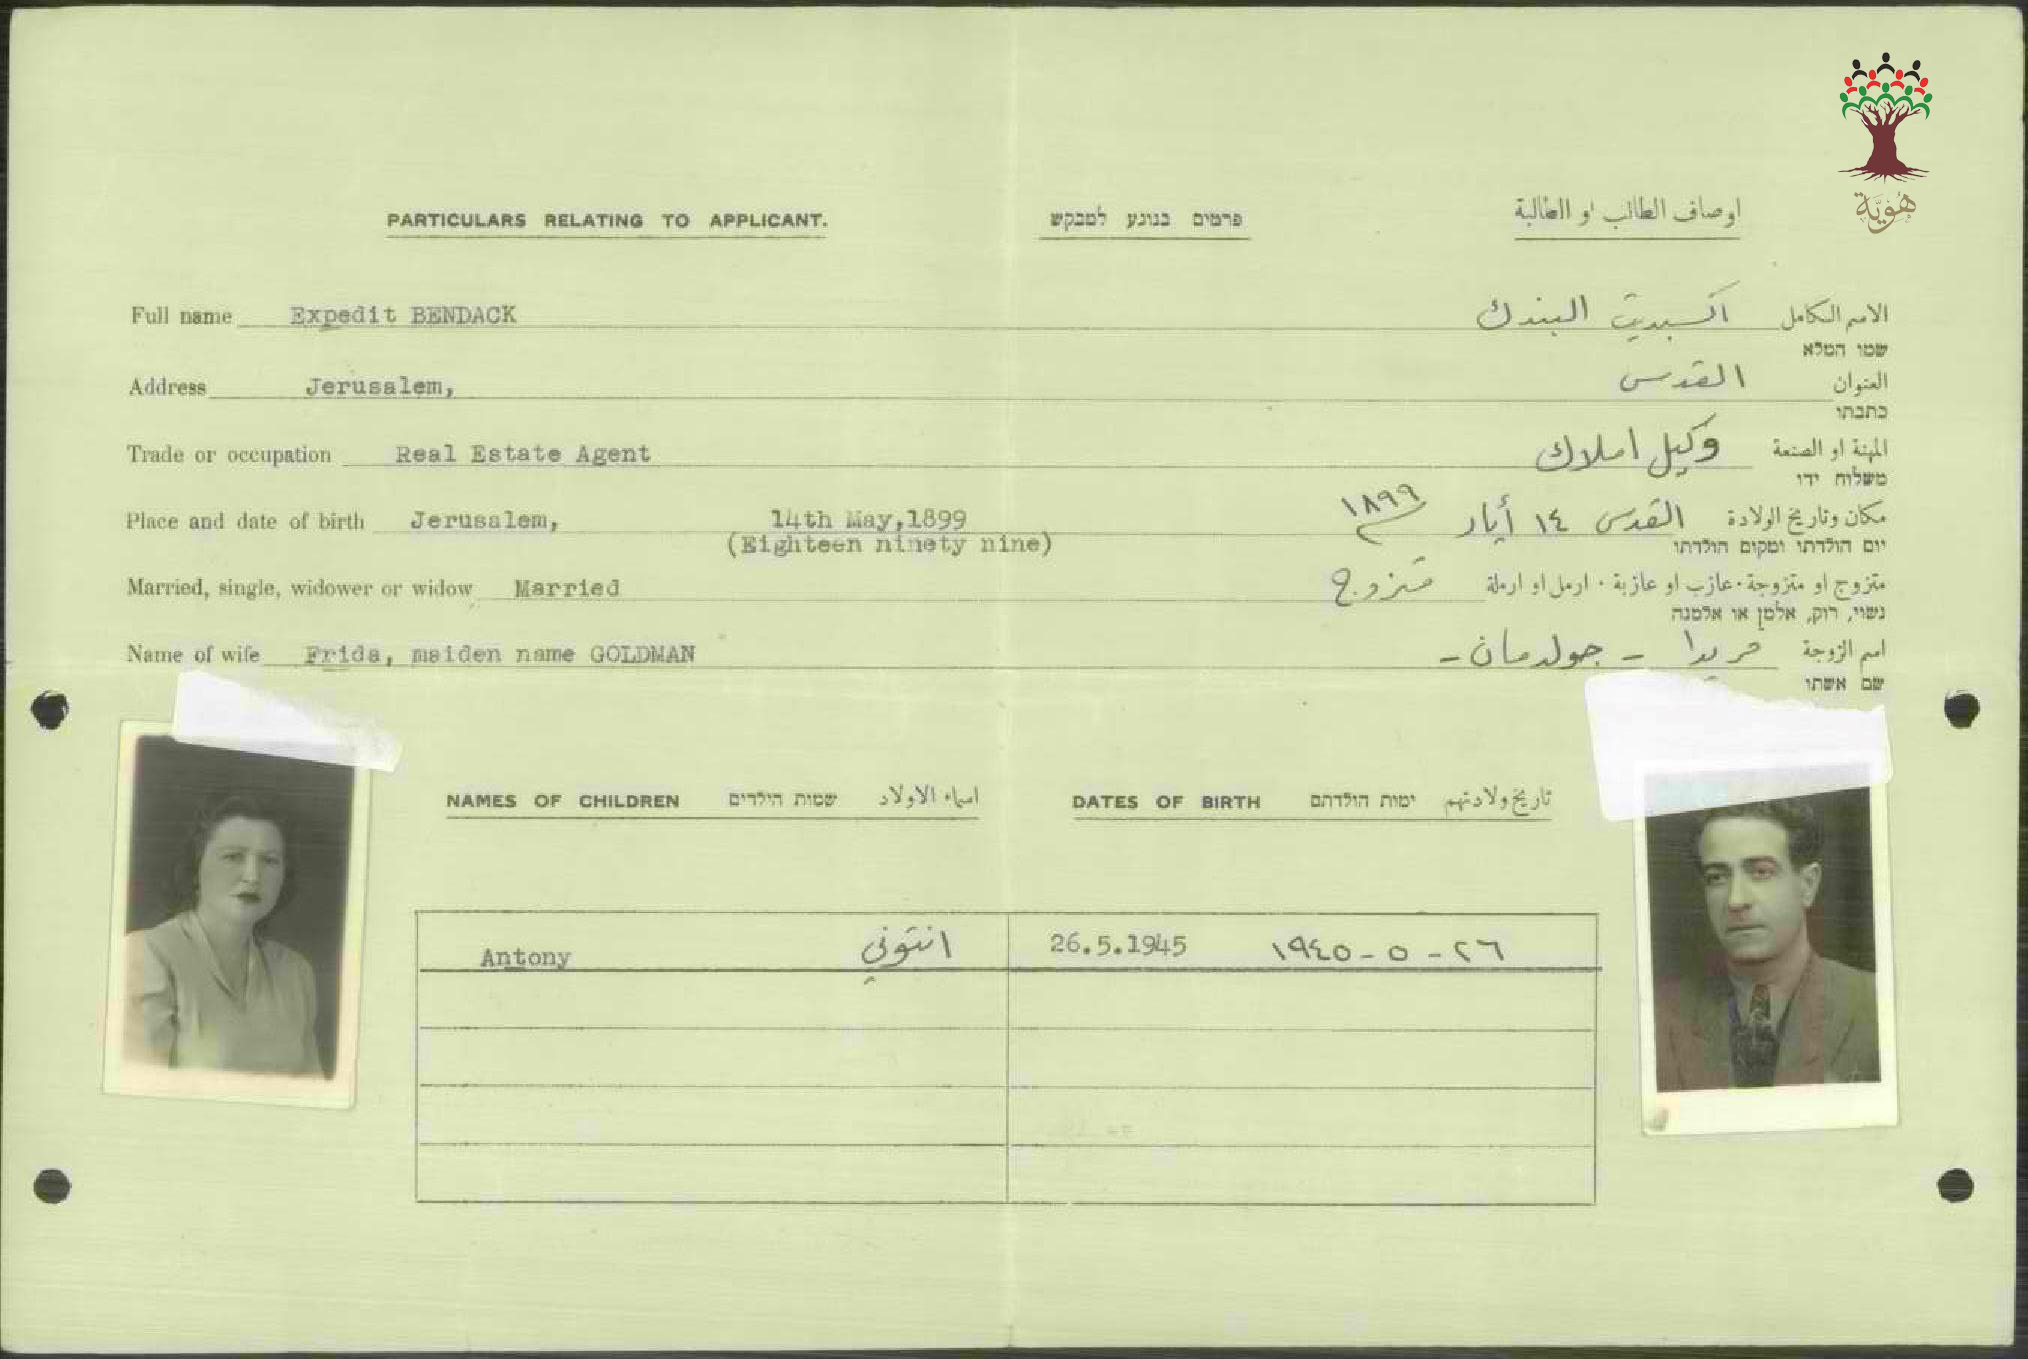 هُوِيَّة
PARTICULARS RELATING TO APPLICANT. פרטים בנוגע למבקש اوصاف الطالب او الطالبة
Full name Expedit BENDACK اكسبديت البندك الاسم الكامل
שמו המלא
Address Jerusalem, القدس العنوان
כתבתו
Trade or occupation Real Estate Agent وكيل املاك المهنة او الصنعة
משלוח ידו
Place and date of birth Jerusalem, 14th May,1899 القدس ١٤ أيار ١٨٩٩ مكان وتاريخ الولادة
(Eighteen ninety nine) יום הולדתו ומקום הולדתו
Married, single, widower or widow Married متزوج متزوج او متزوجة · عازب او عازبة · ارمل او ارملة
נשוי, רוק, אלמן או אלמנה
Name of wife Frida, maiden name GOLDMAN فريدا - جولدمان - اسم الزوجة
שם אשתו
NAMES OF CHILDREN שמות הילדים اسماء الاولاد DATES OF BIRTH ימות הולדתם تاريخ ولادتهم
Antony انتوني 26.5.1945 ٢٦ - ٥ - ١٩٤٥